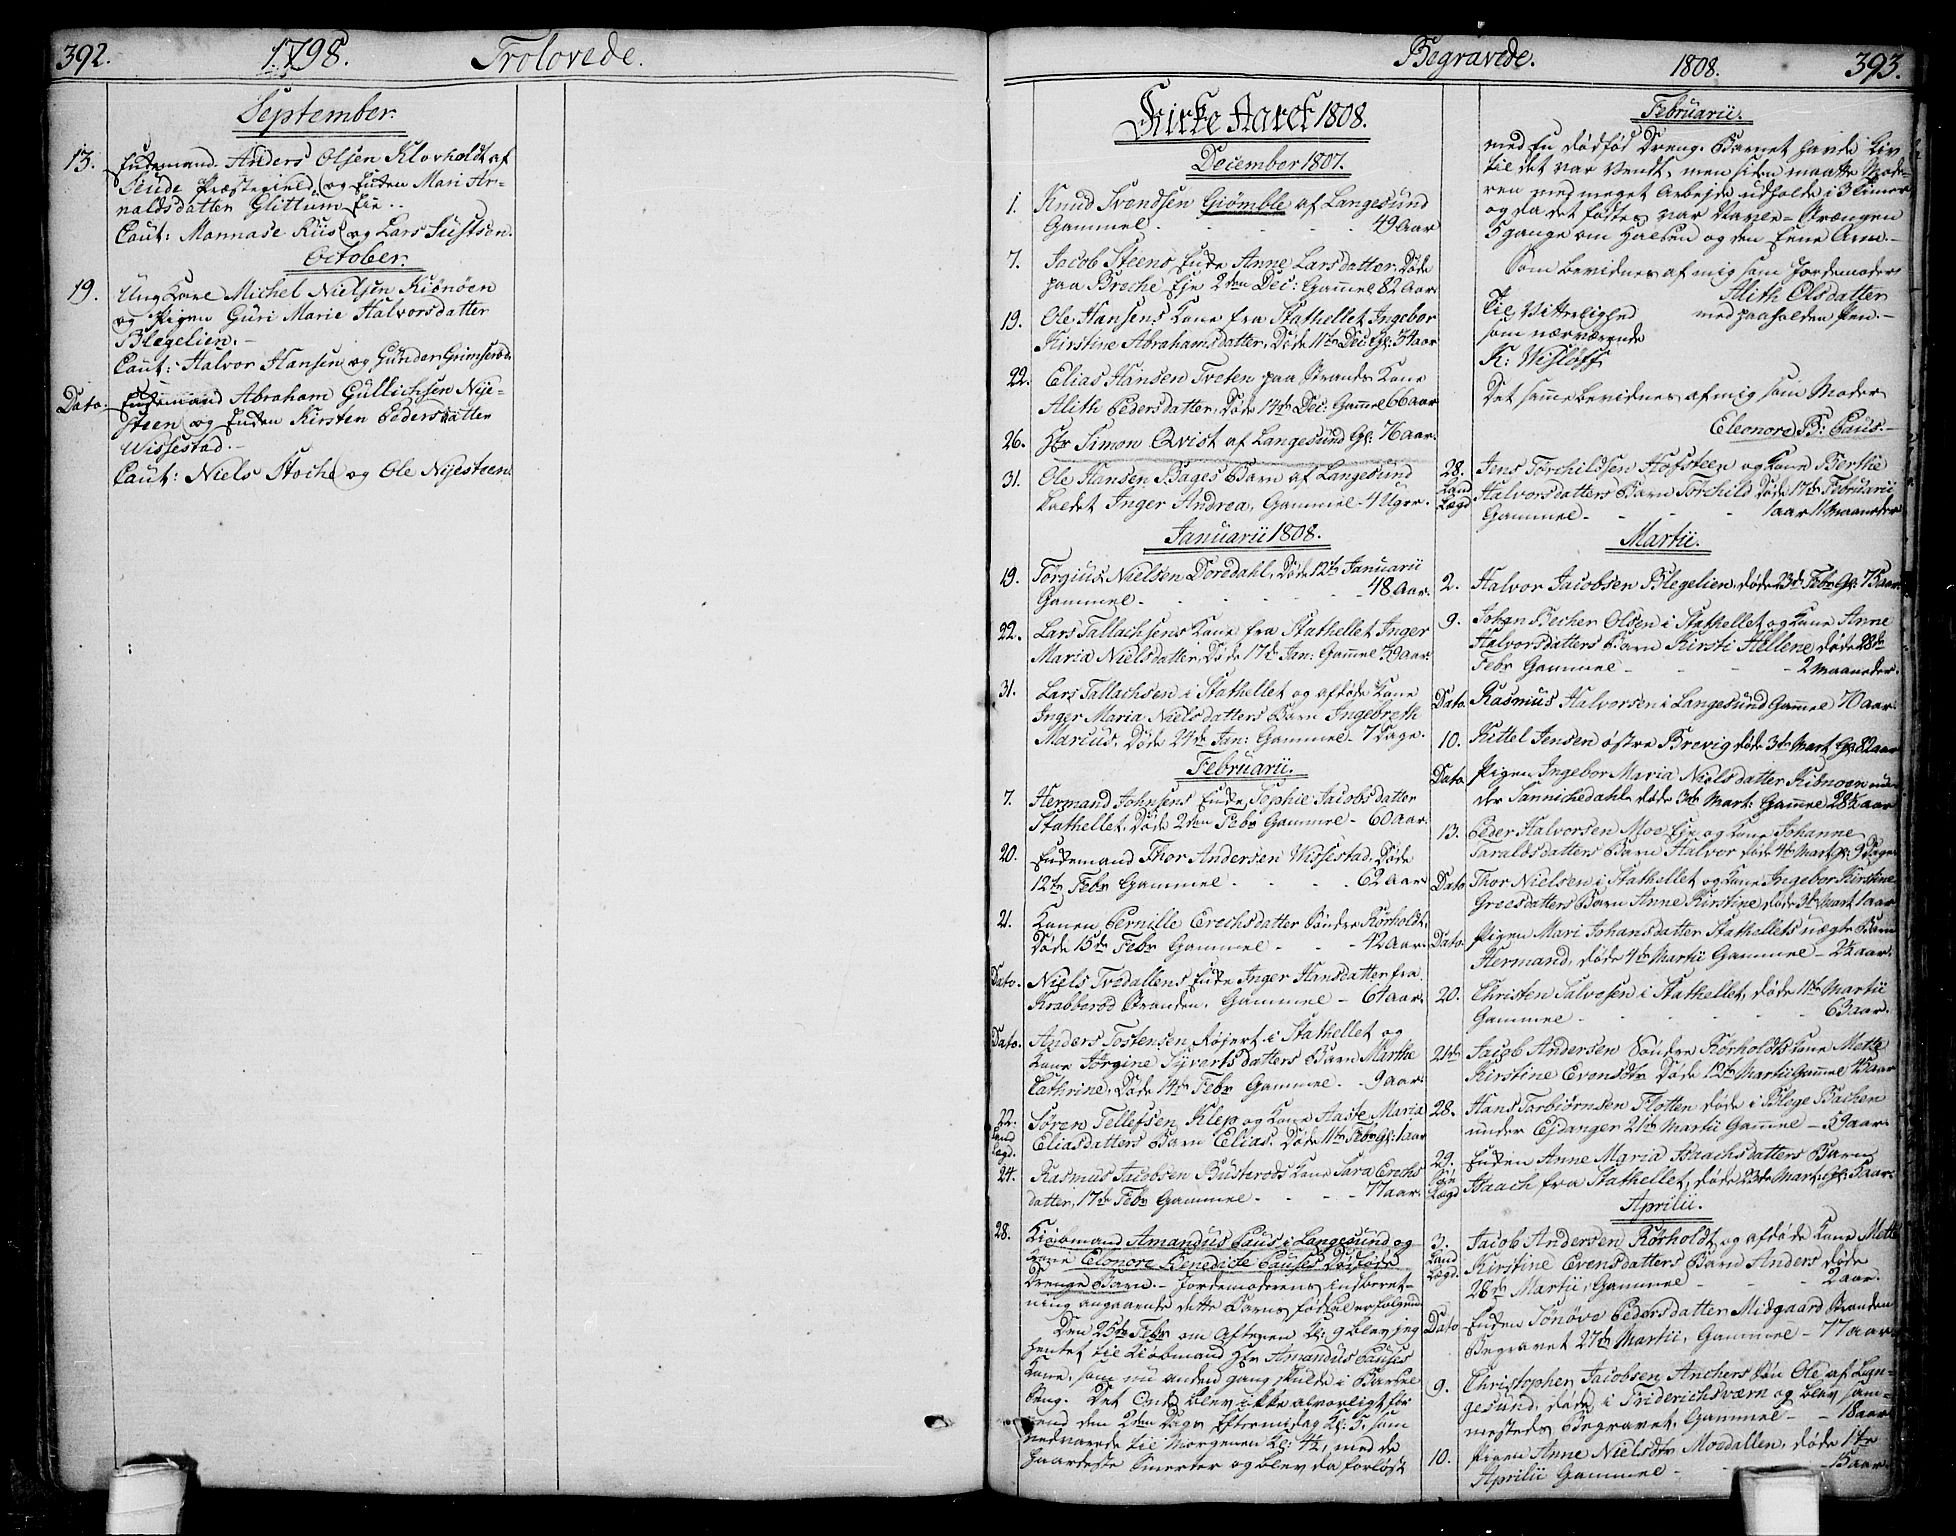 392.
1798.
Trolovede.
September.
13. Enkemand Anders Olsen Klovholdt af
Præstegield, og Enken Mari Ar-
naldsdatter Glittum Eie.
Caut: Mannase Riis og Lars
October.
19. Ung Karl Michel Nielsen Kiønøen
og Pigen Guri Marie Halvorsdatter
Blegelien.
Caut: Halvor Hansen og Gunder Grimserod.
Dato. Enkemand Abraham Gullichsen Nye-
steen og Enken Kirsten Pedersdatter
Wissestad.
Caut: Niels Stoche og Ole Nyesteen.
Begravede.
1808.
393.
Kirke Aaret 1808.
December 1807.
1. Knud Svendsen Giømble af Langesund
Gammel - 49 Aar
7. Jacob Steens Enke Anne Larsdatter, Døde
paa Breche Eje 2den Dec: Gammel 82 Aar.
19. Ole Hansens Kone fra Stathellet Ingebor
Kirstine Abrahamsdatter, Døde 11te Dec: Gl: 34 aar
22. Elias Hansen Tveten paa Strands Kone
Alith Pedersdatter, Døde 14de Dec: Gammel 66 aar
26. Hr Simon Qvist af Langesund Gl: 76 aar.
31. Ole Hansen Bages Barn af Langesund
kaldet Inger Andrea, Gammel - 4 Uger.
Januarii 1808.
19. Torgius Nielsen Dordahl, Døde 12te Januarii
Gammel - 48 Aar.
22. Lars Tallachsens Kone fra Stathellet Inger
Maria Nielsdatter, Døde 17de Jan: Gammel 39 aar.
31. Lars Tallachsen i Stathellet og afdøde Kone
Inger Maria Nielsdatters Barn Ingebreth
Marcus, Døde 24de Jan: Gammel - 7 Dage.
Februarii.
7. Hermand Johnsens Enke Sophie Jacobsdatter
Stathellet, Døde 2den Febr Gammel - 60 Aar.
20. Enkemand Thor Andersen Wissestad, Døde
12te Febr Gammel - 62 aar
21. Konen Pernille Erechsdatter Søndre Kørholdt,
Døde 15de Febr Gammel - 42 aar.
Dato. Niels Tvedallens Enke Inger Hansdatter fra
Krabberød Stranden, Gammel - 64 aar.
Dato. Anders Tostensen Røjert i Stathellet og
Kone Jørgine Syvertsdatters Barn Marthe
Cathrine, Døde 14de Febr Gammel - 9 aar.
22. Søren Tellefsen Klep og Kone Aaste Maria
Land Lægd. Eliasdatters Barn Elias, Døde 11te Febr Gl: 1 aar
24. Rasmus Jacobsen Busterods Kone Sara Erechs
datter, 17de Febr Gammel - 77 aar.
28. Kiøbmand Amandus Paus i Langesund og
Kone Elonore Benedicte Pauses Dødfødte
Drenge Barn. - Jordemoderens Indberet-
ning angaaende dette Barns fødsel er følgende
Den 25de Febr om Aftenen Kl: 9 blev jeg
hentet til Kiøbmand Hr Amandus Pauses
Kone, som nu anden gang skulde i Barsel
Seng. Det Onde blev ikke alvorligt før
end den 2den Dags Eftermidag Kl: 5, som
vedvarede til Morgenen Kl: 4½, med de
haardeste Smerter og blev da forløst
Februarii.
med En dødfød Dreng. Barnet havde Liv
til det var Vendt, men siden maatte Mode-
ren med meget Arbejde udholde i 3 timer
og da det fødtes var Navle-Strængen
5 gange om Halsen og den Ene Arm. -
Som bevidnes af mig som Jordemoder
Alith Olsdatter
med paaholden Pen. -
Til Vitterlighed
som nærværende
K: Wisløff
Det samme bevidnes af mig som Moder
Eleonore B: Paus. -
28. Jens Torchildsen Hofsteen og Kone Berthe
Land Lægd Halvorsdatters Barn Torchild Døde 17de Februarii
Gammel - 1 aar 11 Maaneder
Martii.
2. Halvor Jacobsen Blegelien, døde 23de Febr Gl: 75 aar.
9. Johan Becher Olsen i Stathellet og Kone Anne
Halvorsdatters Barn Kirsti Hellene, døde 28de
Febr Gammel - 2 Maaneder.
Dato. Rasmus Halvorsen i Langesund Gammel 70 aar.
10. Kittel Jensen østre Brevig døde 3de Mart. Gl: 82 aar
Dato. Pigen Ingebor Maria Nielsdatter Kiønøen un-
der Sannichedahl, døde 3de Mart: Gammel 28½ aar
13. Peder Halvorsen Moe Eje og Kone Johanne
Taraldsdatters Barn Halvor døde 4de Mart. gl: 9 Dage
Dato Thor Nielsen i Stathellet og Kone Ingebor Kirstine
Greesdatters Barn Anne Kirstine, døde 3de Mart. 1 aar
Dato. Pigen Mari Johansdatter Stathellets uægte Barn
Hermand, døde 4de Martii Gammel - 2½ aar.
20. Christen Salvesen i Stathellet, døde 11te Martii
Gammel - 63 aar.
21de Jacob Andersen Søndre Kørholdts Kone Mette
Kirstine Evensdtr Døde 12te Martii Gammel 45 aar
28. Hans Torbiørnsen Flotten døde i Blege Bachen
under Ejdanger 21de Martii Gammel - 59 aar.
29. Enken Anne Maria Isaachsdatters Barn
Lægd Isaach fra Stathellet, døde 23de Mart. Gl: 3 aar.
Aprilii.
3. Jacob Andersen Kørholdt og afdøde Kone Mette
Land Lægd. Kirstine Evensdatters Barn Anders døde
28de Martii, Gammel - 2 aar.
Dato Enken Sønøve Pedersdatter Midgaard Stranden
Begravet 27de Martii, Gammel - 77 aar
9. Christopher Jacobsen Anchers Søn Ole af Lan-
gesund, døde i Friderichsværn og blev sam-
mesteds Begravet, Gammel - 18 aar
10. Pigen Anne Nielsdtr Moedallen, døde 1te
Aprilii Gammel - 15 aar.